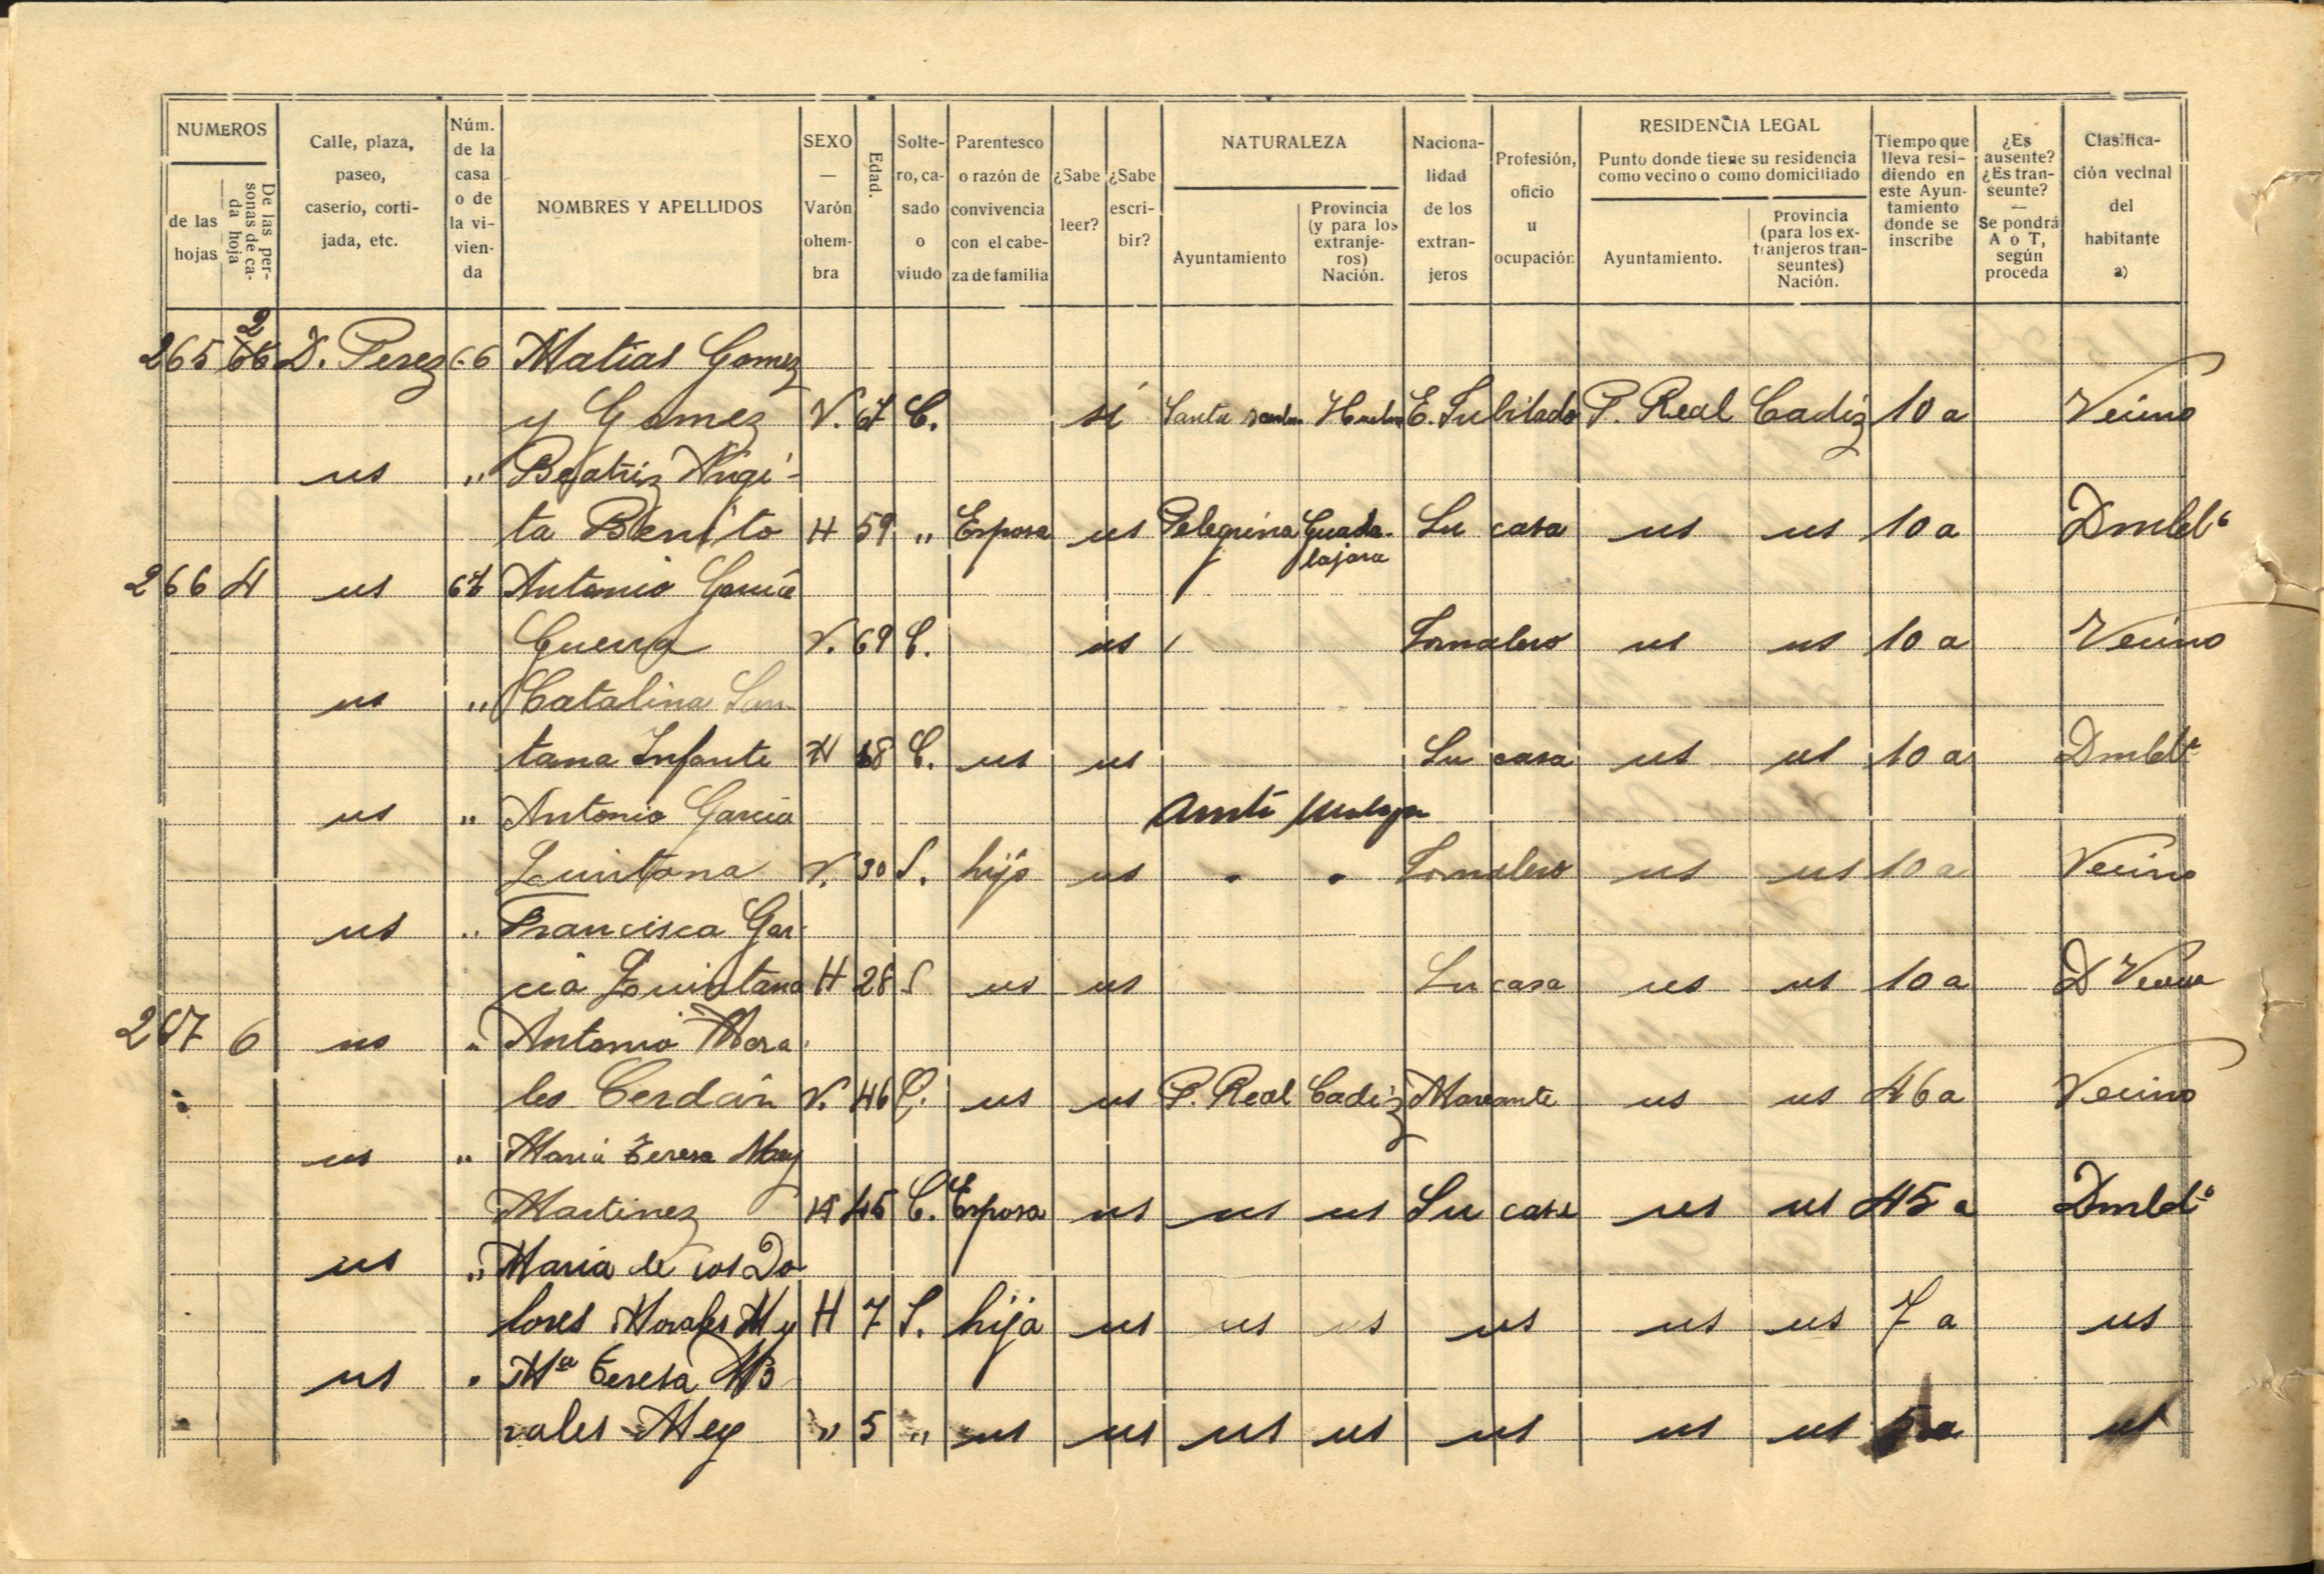 NUMEROS
de las hojas
De las personas de cada hoja
Calle, plaza, paseo, caserío, cortijada, etc.
Núm. de la casa o de la vivienda
NOMBRES Y APELLIDOS
SEXO — Varón o hembra
Edad.
Soltero, casado o viudo
Parentesco o razón de convivencia con el cabeza de familia
¿Sabe leer?
¿Sabe escribir?
NATURALEZA
Ayuntamiento
Provincia (y para los extranjeros) Nación.
Nacionalidad de los extranjeros
Profesión, oficio u ocupación
RESIDENCIA LEGAL
Punto donde tiene su residencia como vecino o como domiciliado
Ayuntamiento.
Provincia (para los extranjeros transeuntes) Nación.
Tiempo que lleva residiendo en este Ayuntamiento donde se inscribe
¿Es ausente? ¿Es transeunte? — Se pondrá A o T, según proceda
Clasificación vecinal del habitante a)
265 2 D. Perez 66 Matias Gomez
y Gomez V. 67 C. si Santa E. Jubilado P. Real Cadiz 10 a Vecino
us " Beatriz
ta Benito H 59 " Esposa us Pelegrina Guadalajara Su casa us us 10 a Dmbdº
266 4 us 67 Antonio Garcia
Guerra V. 69 C. us Jornalero us us 10 a Vecino
us " Catalina San
tana Infante H 68 C. us us Su casa us us 10 a Dmbdª
us " Antonio Garcia Malaga
Quintana V. 30 S. hijo us " " Jornalero us us 10 a Vecino
us " Francisca Gar
cia Quintana H 28 S us us Su casa us us 10 a D Vecina
267 6 us " Antonio Mora
les Cerdán V. 46 C. us us P. Real Cadiz Mareante us us 46 a Vecino
us " Maria Teresa Mey
Martinez H 45 C. Esposa us us us Su casa us us 45 a Dmbdº
us " Maria de los Do
lores Morales My H 7 S. hija us us us us us us 7 a us
us " Mª Teresa Mo
rales Mey " 5 " us us us us us us us 5 a us